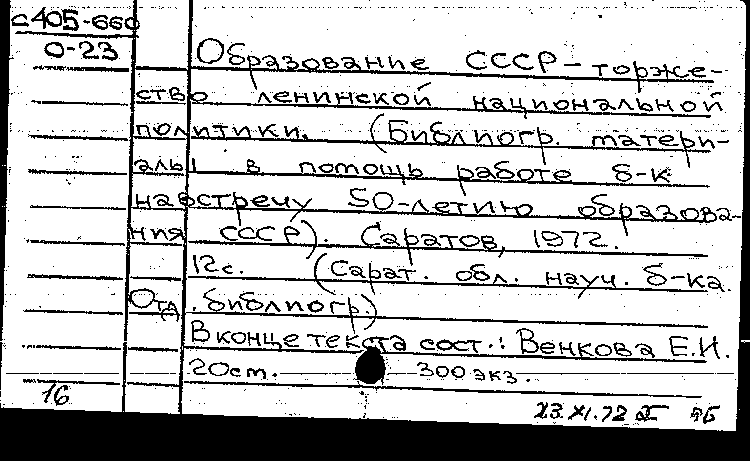 с405-660
О-23
Образование СССР – торже-
ство ленинской национальной
политики. (Библиогр. матери-
алы в помощь работе б-к
навстречу 50-летию образова-
ния СССР). Саратов, 1972.
12с. (Сарат. обл. науч. б-ка.
Отд. библиогр.)
В конце текста сост.: Венкова Е.И.
20см. 300 экз.
16
23.XI.72